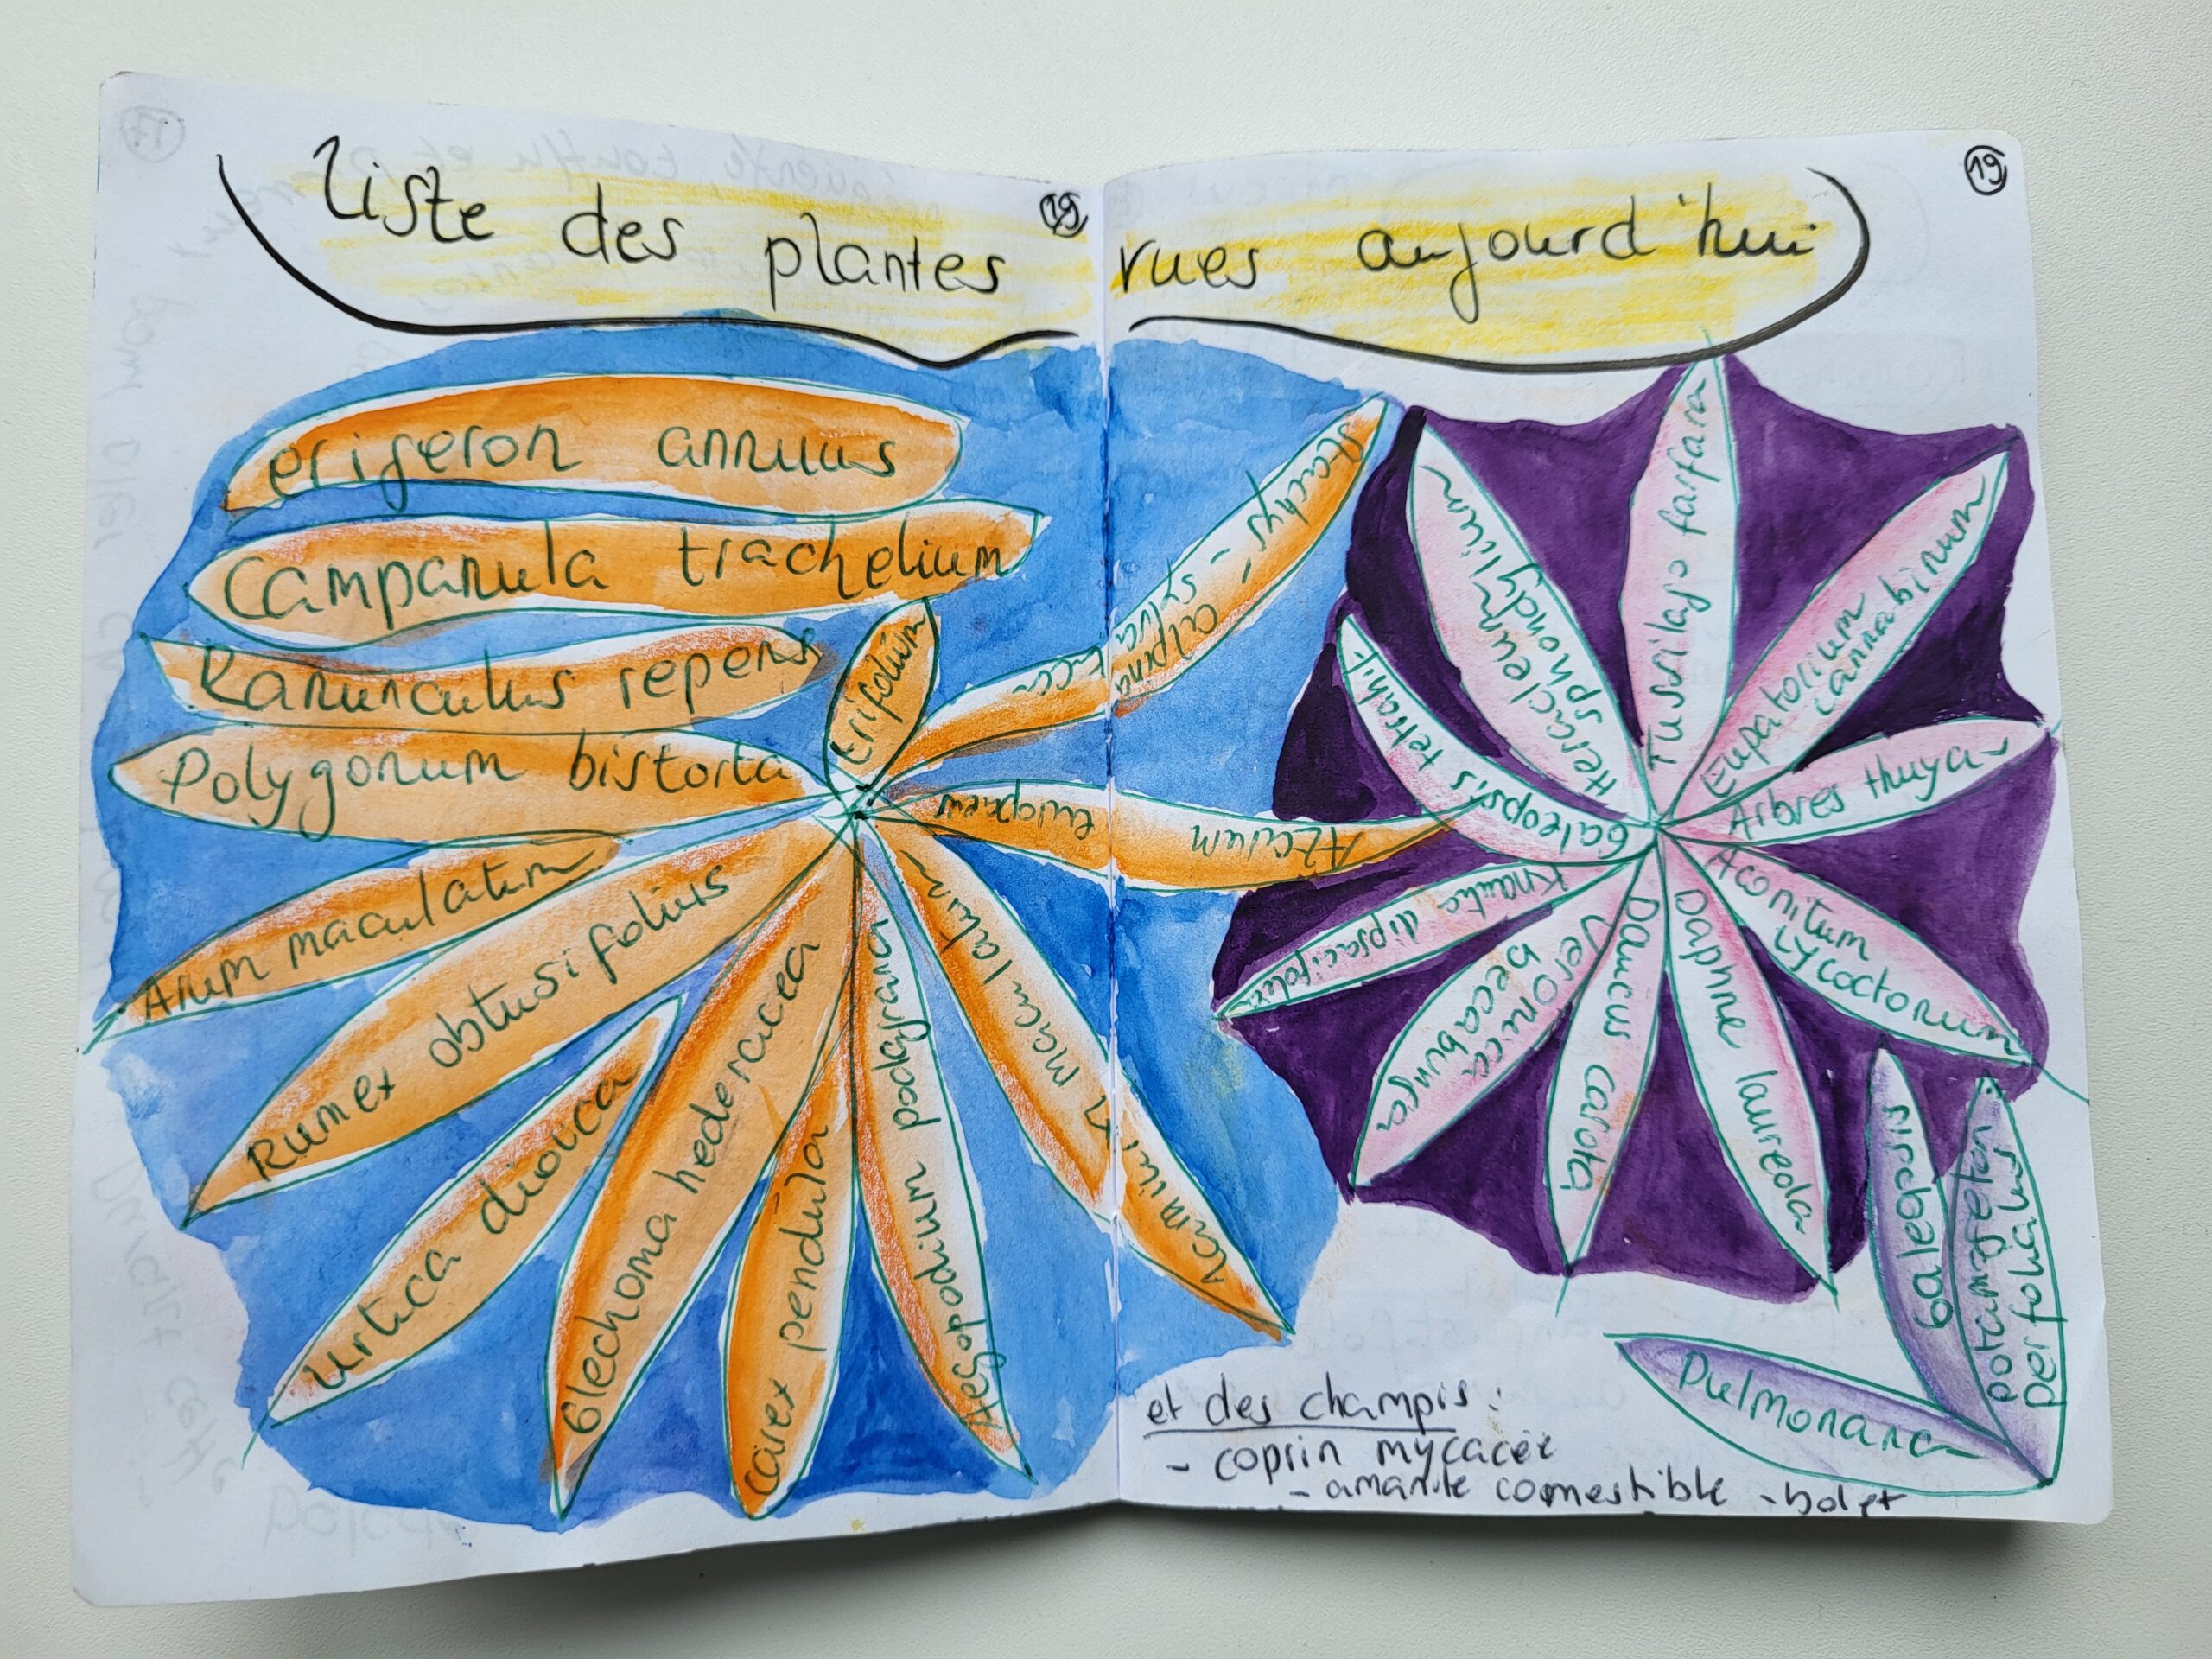 liste des plantes
19
vues aujourd'hui
19
erigeron annuus
campanula trachelium
Ranunculus repens
Polygonum bistorta
Arum maculatum
Rumex obtusifolius
urtica dioica
Glechoma hederacea
carex pendula
Aegopodium podagraria
Lamium maculatum
europaeum
trifolium
stachys - sylvatica
alpina
Galeopsis tetrahit
Heracleum
sphondylium
Tussilago farfara
Eupatorium
cannabinum
Arbres thuya
Aconitum
Lycoctonum
Daphne laureola
Daucus carota
Veronica
beccabunga
Knautia dipsacifolia
Galeopsis
potamogeton
perfoliatus
Pulmonaria
et des champis :
- coprin mycacée
- amanite comestible - bolet